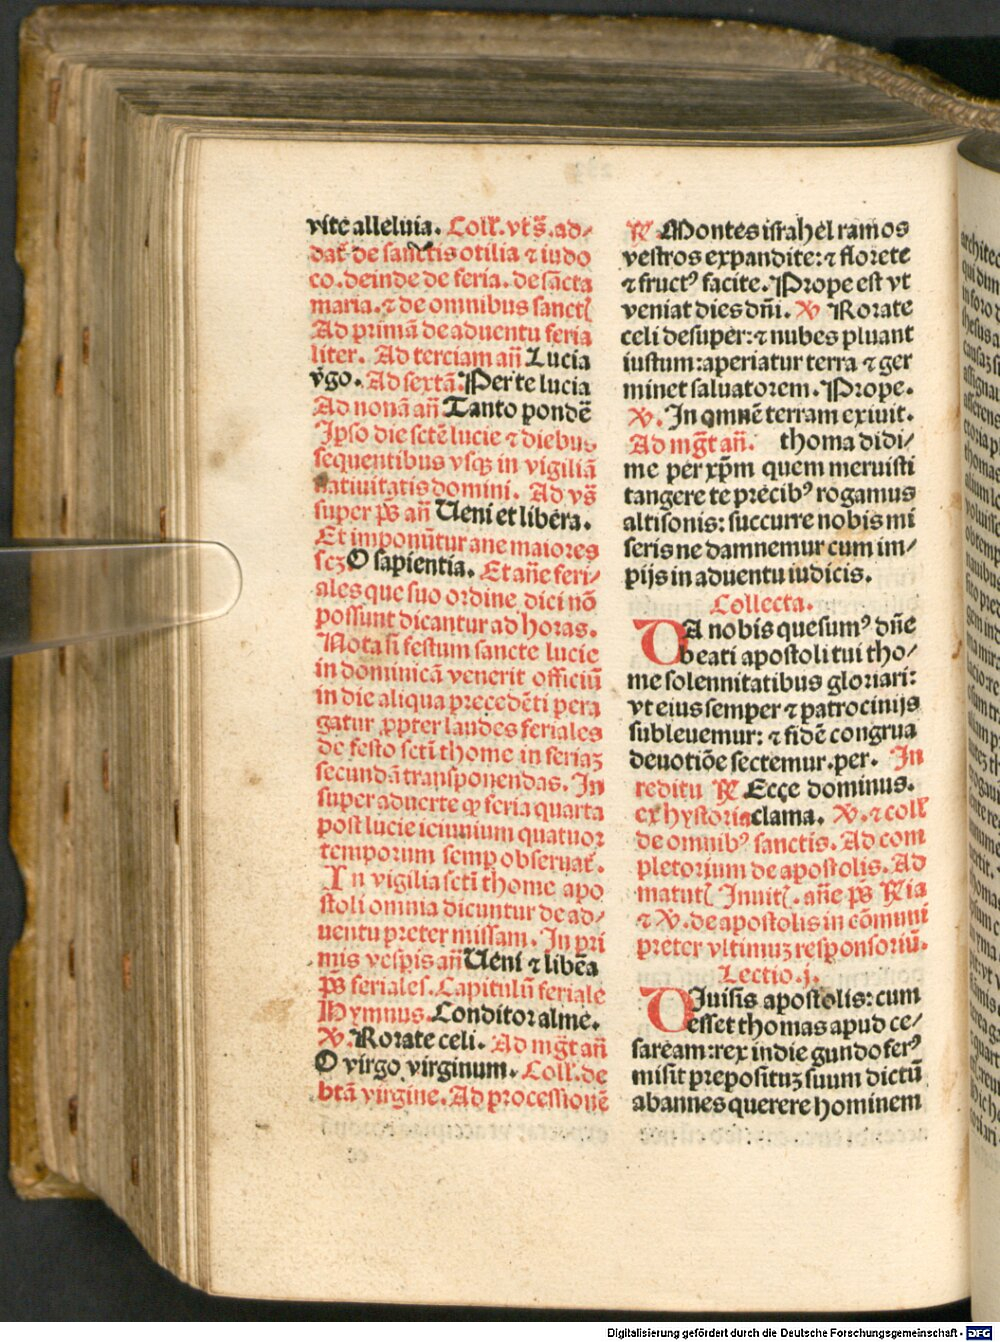 vite alleluia. Coll'. vt s̃. ad-
dat̃ de sanctis otilia ⁊ iudo
co. deinde de feria. de sãcta
maria. ⁊ de omnibus sanct̃
Ad primã de aduentu feria
liter. Ad terciam añ Lucia
v̾go. Ad sextã. Per te lucia
Ad nonã añ Tanto pondẽ
Ipso die sctẽ lucie ⁊ diebus
sequentibus vsqꝫ in vigiliã
natiuitatis domini. Ad vs̃
super p̃s añ Ueni et libera.
Et imponũtur ane maiores
scꝫ O sapientia. Et añe feri-
ales que suo ordine dici nõ
possunt dicantur ad horas.
Nota si festum sancte lucie
in dominicã venerit officiũ
in die aliqua precedẽti pera
gatur ꝓpter laudes feriales
de festo sctĩ thome in feriaꝫ
secundã transponendas. In
super aduerte ꝙ feria quarta
post lucie ieiunium quatuor
temporum semꝑ obseruat̃.
In vigilia sctĩ thome apo
stoli omnia dicuntur de ad-
uentu preter missam. In pri
mis vesp̃is añ Ueni ⁊ libẽa
p̃s feriales. Capitulũ feriale
Hymnus. Conditor alme.
℣. Rorate celi. Ad mg̃t añ
O virgo virginum. Coll'. de
btã virgine. Ad processionẽ
℟ Montes israhel ramos
vestros expandite: ⁊ florete
⁊ fructꝰ facite. Prope est vt
veniat dies dñi. ℣ Rorate
celi desuper: ⁊ nubes pluant
iustum: aperiatur terra ⁊ ger
minet saluatorem. Prope.
℣. In omnẽ terram exiuit.
Ad mg̃t añ. thoma didi-
me per xp̃m quem meruisti
tangere te precibꝰ rogamus
altisonis: succurre nobis mi
seris ne damnemur cum im-
pijs in aduentu iudicis.
Collecta.
DA nobis quesumꝰ dñe
beati apostoli tui tho-
me solennitatibus gloriari:
vt eius semper ⁊ patrocinijs
subleuemur: ⁊ fidẽ congrua
deuotiõe sectemur. per. In
reditu ℟ Ecce dominus.
ex hystoria clama. ℣. ⁊ coll'
de omnibꝰ sanctis. Ad com
pletorium de apostolis. Ad
matut̃ Inuit̃. añe p̃s ℟ia
⁊ ℣. de apostolis in cõmuni
preter vltimuꝫ responsoriũ.
Lectio. j.
DIuisis apostolis: cum
esset thomas apud ce-
saream: rex indie gundoferꝰ
misit prepositũ suum dictũ
abannes querere hominem
Digitalisierung gefördert durch die Deutsche Forschungsgemeinschaft - DFG